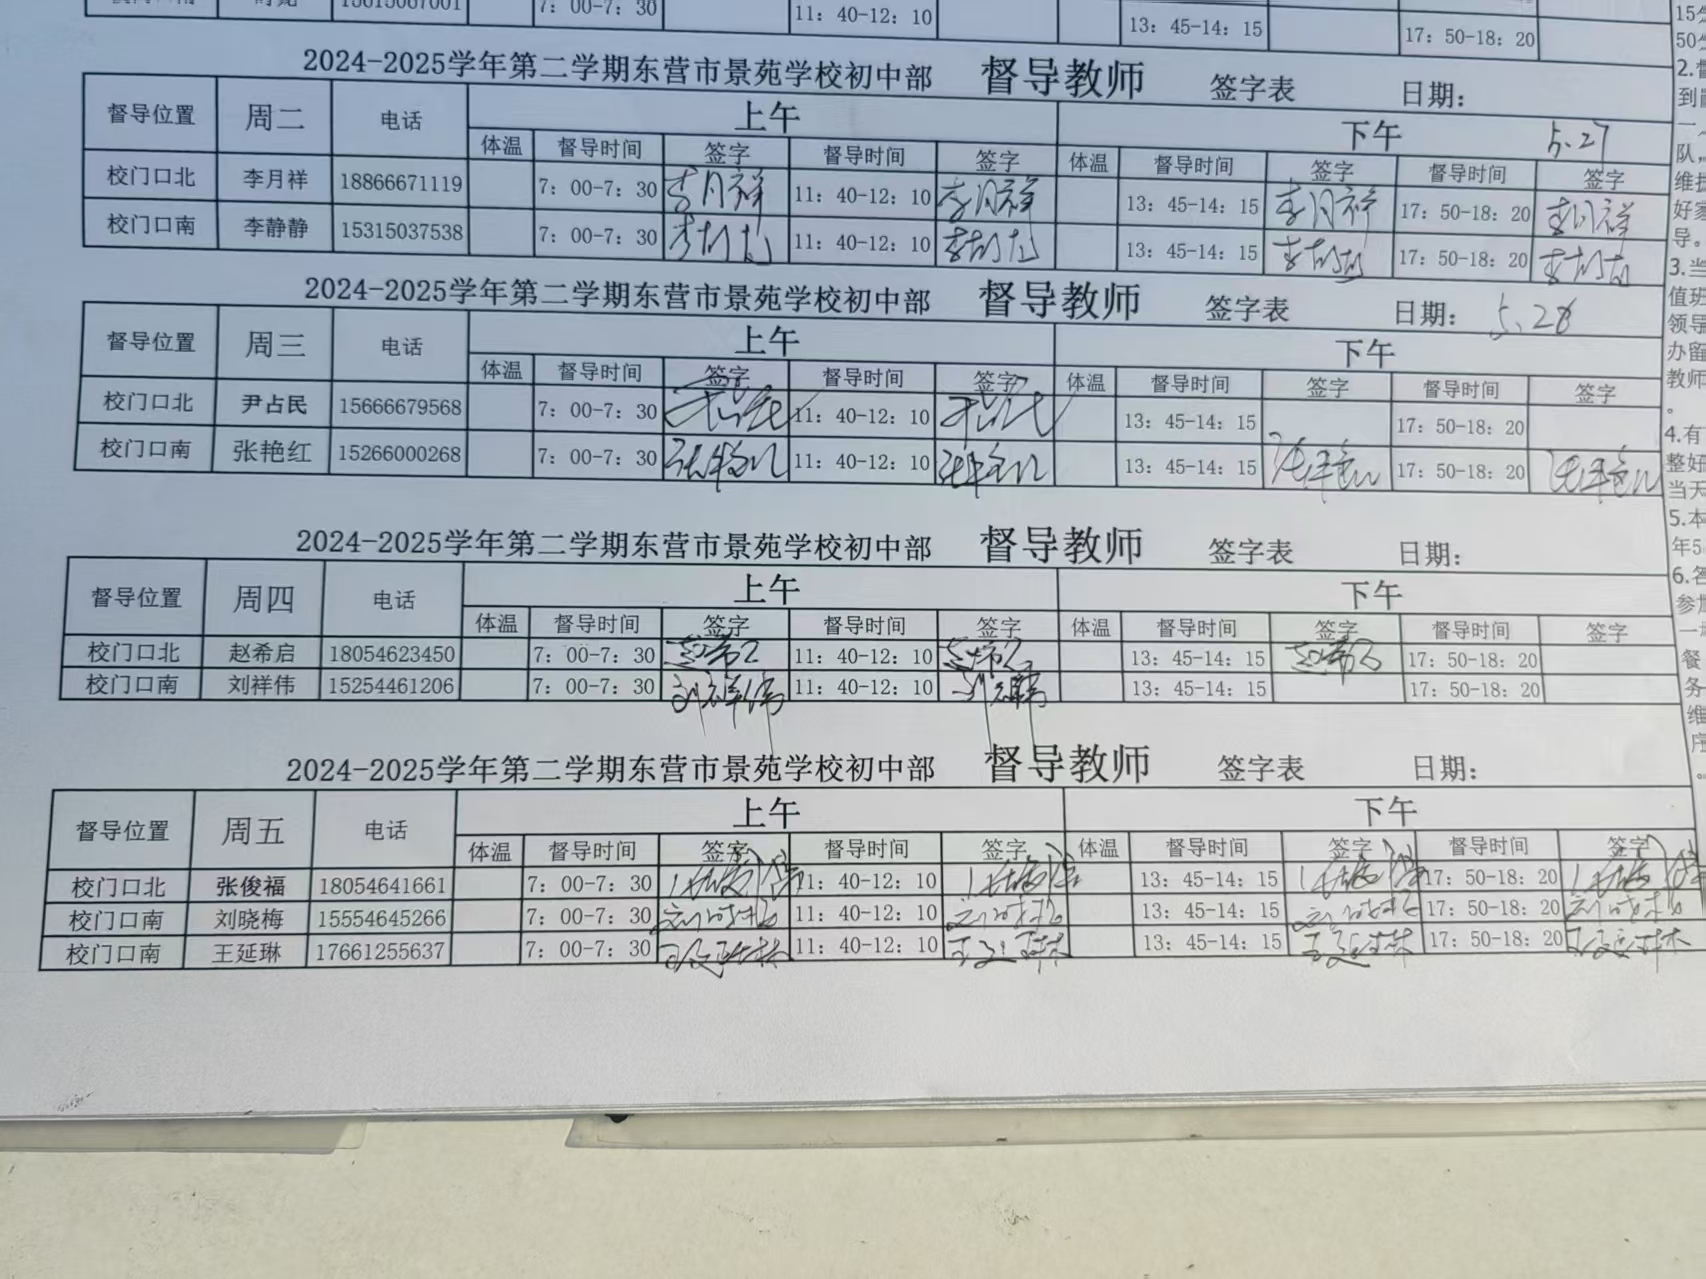 7：00-7：30 11：40-12：10 13：45-14：15 17：50-18：20
2024-2025学年第二学期东营市景苑学校初中部 督导教师 签字表 日期：
督导位置 周二 电话 上午 下午 5.27
体温 督导时间 签字 督导时间 签字 体温 督导时间 签字 督导时间 签字
校门口北 李月祥 18866671119 7：00-7：30 李月祥 11：40-12：10 李月祥 13：45-14：15 李月祥 17：50-18：20 李月祥
校门口南 李静静 15315037538 7：00-7：30 11：40-12：10 13：45-14：15 17：50-18：20
2024-2025学年第二学期东营市景苑学校初中部 督导教师 签字表 日期： 5.28
督导位置 周三 电话 上午 下午
体温 督导时间 签字 督导时间 签字 体温 督导时间 签字 督导时间 签字
校门口北 尹占民 15666679568 7：00-7：30 11：40-12：10 13：45-14：15 17：50-18：20
校门口南 张艳红 15266000268 7：00-7：30 张艳红 11：40-12：10 张艳红 13：45-14：15 张艳红 17：50-18：20 张艳红
2024-2025学年第二学期东营市景苑学校初中部 督导教师 签字表 日期：
督导位置 周四 电话 上午 下午
体温 督导时间 签字 督导时间 签字 体温 督导时间 签字 督导时间 签字
校门口北 赵希启 18054623450 7：00-7：30 11：40-12：10 13：45-14：15 17：50-18：20
校门口南 刘祥伟 15254461206 7：00-7：30 刘祥伟 11：40-12：10 13：45-14：15 17：50-18：20
2024-2025学年第二学期东营市景苑学校初中部 督导教师 签字表 日期：
督导位置 周五 电话 上午 下午
体温 督导时间 签字 督导时间 签字 体温 督导时间 签字 督导时间 签字
校门口北 张俊福 18054641661 7：00-7：30 11：40-12：10 13：45-14：15 17：50-18：20
校门口南 刘晓梅 15554645266 7：00-7：30 刘晓梅 11：40-12：10 刘晓梅 13：45-14：15 刘晓梅 17：50-18：20 刘晓梅
校门口南 王延琳 17661255637 7：00-7：30 王延琳 11：40-12：10 王延琳 13：45-14：15 王延琳 17：50-18：20 王延琳
50
2.督
到
一
队，
维
好
导。
3.当
值班
领导
办留
教师
。
4.有
整好
当天
5.本
年5
6.答
参加
一
餐
务
维
序
。